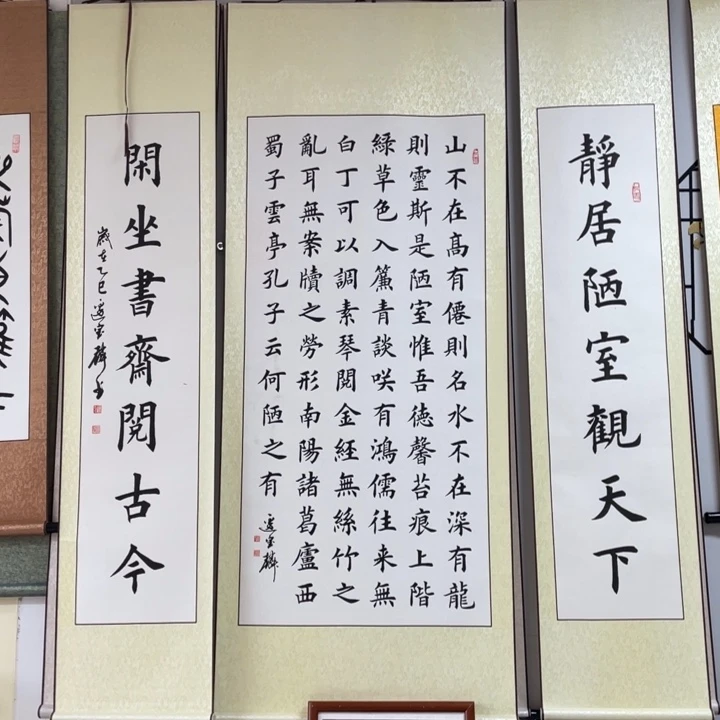 靜居陋室觀天下
山不在髙有僊則名水不在深有龍
則靈斯是陋室惟吾徳馨苔痕上階
綠草色入簾青談咲有鴻儒往来無
白丁可以調素琴閱金経無絲竹之
亂耳無案牘之勞形南陽諸葛廬西
蜀子雲亭孔子云何陋之有
閑坐書齋閱古今
歲在乙巳